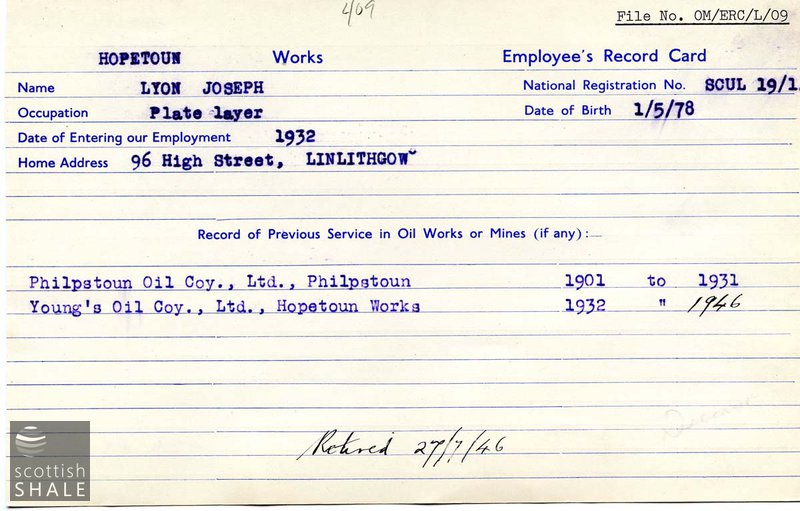 409
File No. OM/ERC/L/09
HOPETOUN Works Employee's Record Card
Name LYON JOSEPH National Registration No. SCUL 19/1
Occupation Plate layer Date of Birth 1/5/78
Date of Entering our Employment 1932
Home Address 96 High Street, LINLITHGOW
Record of Previous Service in Oil Works or Mines (if any):—
Philpstoun Oil Coy., Ltd., Philpstoun 1901 to 1931
Young's Oil Coy., Ltd., Hopetoun Works 1932 " 1946
Retired 27/7/46
scottish
SHALE